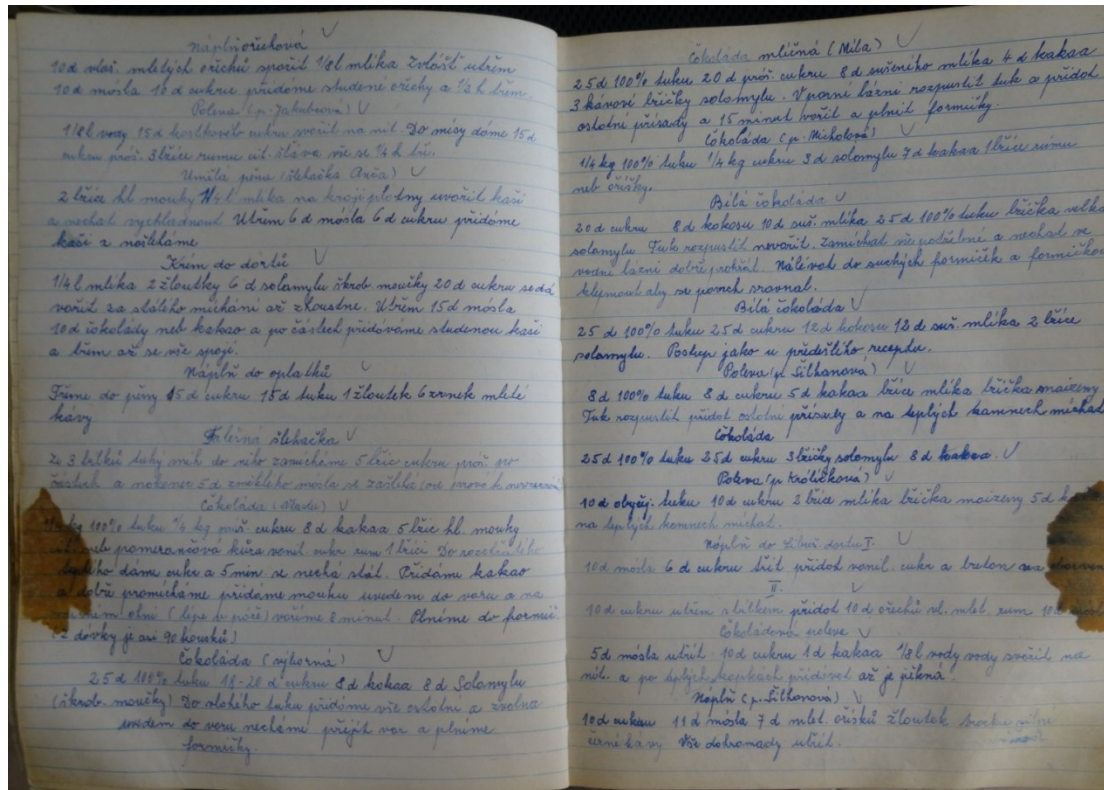 Náplň ořechová
10d vlaš. mletých ořechů spařit 1/8l mlíka Zvlášť utřem
10d másla 10d cukru přidáme studené ořechy a 1/2 h třem.
Poleva (p. Jakubcová)
1/8l vody 15d kostkového cukru svařit na nit. Do mísy dáme 15d
cukru práš. 3 lžíce rumu cit. šťáva vše se 1/4 h tř.
Umělá pěna (šlehačka Anča)
2 lžíce hl. mouky 1/4 l mlíka na kraji plotny uvařit kaši
a nechat vychladnout Utřem 6d másla 6d cukru přidáme
kaši a našleháme
Krém do dortů
1/4 l mlíka 2 žloutky 6d solamylu škrob. moučky 20d cukru se dá
vařit za stálého míchání až zhoustne. Utřem 15d másla
10d čokolády neb kakao a po částech přidáváme studenou kaši
a třem až se vše spojí.
Náplň do oplatků
Třeme do pěny 15d cukru 15d tuku 1 žloutek 6 zrnek mleté
kávy
Falešná šlehačka
Ze 3 bílků tuhý sníh do něho zamícháme 5 lžic cukru práš. po
částech a nakonec 5d změklého másla se zašlehá
Čokoláda
100% tuku 1/4 kg práš. cukru 8d kakaa 5 lžic hl. mouky
neb pomerančová kůra vanil. cukr rum 1 lžíci Do rozehřátého
dáme cukr a 5 min se nechá stát. Přidáme kakao
a dobře promícháme přidáme mouku uvedem do varu a na
ohni (lépe v páře) vaříme 8 minut. Plníme do formič.
dávky je asi 90 kousků)
Čokoláda (výborná)
25d 100% tuku 18-20d cukru 8d kakaa 8d Solamylu
(škrob. moučky) Do vlažého tuku přidáme vše ostatní a zvolna
uvedem do varu necháme přejít var a plníme
formičky.
Čokoláda mléčná (Míla)
25d 100% tuku 20d práš. cukru 8d sušeného mlíka 4d kakaa
3 kávové lžičky solamylu. V parní lázni rozpustit tuk a přidat
ostatní přísady a 15 minut vařit a plnit formičky.
Čokoláda (p. Michalová)
1/4 kg 100% tuku 1/4 kg cukru 3d solamylu 7d kakaa 1 lžíce rumu
neb oříšky.
Bílá čokoláda
20d cukru 8d kokosu 10d suš. mlíka 25d 100% tuku lžička velká
solamylu Tuk rozpustit nevařit. Zamíchat vše potřebné a nechat ve
vodní lázni dobře prohřát. Nalévat do suchých formiček a formičkou
klepnout aby se povrch srovnal.
Bílá čokoláda
25d 100% tuku 25d cukru 12d kokosu 12d suš. mlíka 2 lžíce
solamylu. Postup jako u předešlého receptu.
Poleva (p. Šilhanová)
8d 100% tuku 8d cukru 5d kakaa lžíce mlíka lžička maizeny
Tuk rozpustit přidat ostatní přísady a na teplých kamnech míchat
Čokoláda
25d 100% tuku 25d cukru 3 lžičky solamylu 8d kakaa.
Poleva (p. Králíčková)
10d obyčej. tuku 10d cukru 2 lžíce mlíka lžička maizeny 5d
na teplých kamnech míchat.
Náplň do Libuš. dortu I.
10d másla 6d cukru třít přidat vanil. cukr a
II.
10d cukru utřem s bílkem přidat 10d ořechů vl. mlet. rum 10d
Čokoládová poleva
5d másla utřít 10d cukru 1d kakaa 1/8l vody vody svařit na
nit. a po teplých kapkách přidávat až je pěkná.
Náplň (p. Šilhanová)
10d cukru 11d másla 7d mlet. oříšků žloutek trochu silné
černé kávy Vše dohromady utřít.